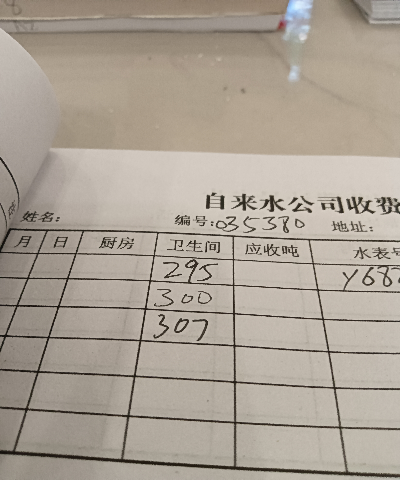 自来水公司收费
姓名: 编号:035380 地址:
月 日 厨房 卫生间 应收吨 水表号
295 Y68
300
307